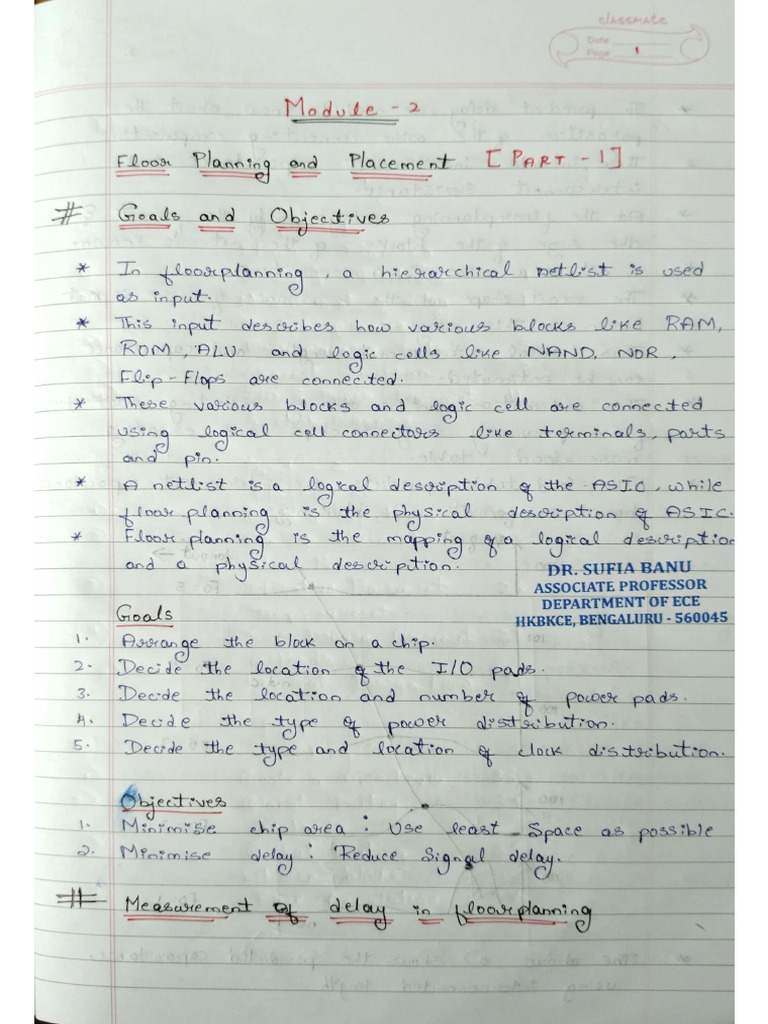 classmate
Date
Page 1
Module - 2
Floor Planning and Placement [PART - 1]
# Goals and Objectives
* In floorplanning, a hierarchical netlist is used
as input.
* This input describes how various blocks like RAM,
ROM, ALU and logic cells like NAND, NOR,
Flip-Flops are connected.
* These various blocks and logic cell are connected
using logical cell connectors like terminals, ports
and pin.
* A netlist is a logical description of the ASIC, while
floor planning is the physical description of ASIC.
* Floor planning is the mapping of a logical description
and a physical description.
DR. SUFIA BANU
ASSOCIATE PROFESSOR
DEPARTMENT OF ECE
HKBKCE, BENGALURU - 560045
Goals
1. Arrange the block on a chip.
2. Decide the location of the I/O pads.
3. Decide the location and number of power pads.
4. Decide the type of power distribution.
5. Decide the type and location of clock distribution.
Objectives
1. Minimise chip area : Use least Space as possible
2. Minimise delay : Reduce Signal delay.
# Measurement of delay in floorplanning